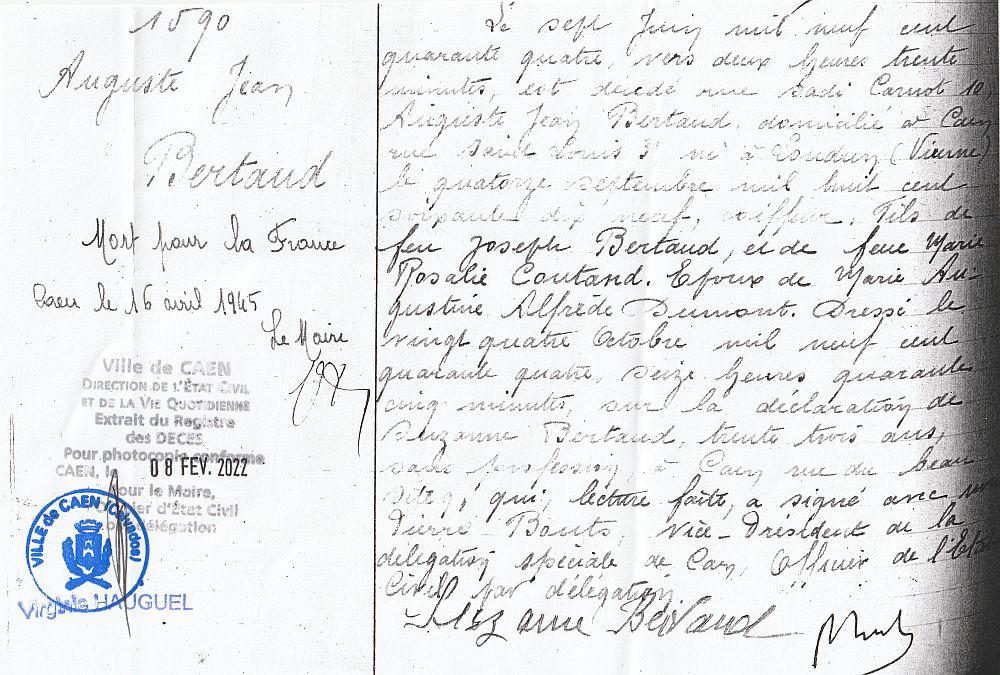 1590
Auguste Jean
Bertaud
Mort pour la France
Caen le 16 avril 1945
Le Maire
Ville de CAEN
DIRECTION DE L'ÉTAT CIVIL
ET DE LA VIE QUOTIDIENNE
Extrait du Registre
des DECES
Pour photocopie conforme
CAEN, le 08 FEV. 2022
Pour le Maire,
Officier d'État Civil
par délégation
VILLE de CAEN (Calvados)
Virginie HAUGUEL
Le sept Juin mil neuf cent
quarante quatre, vers deux heures trente
minutes, est décédé rue Sadi Carnot 10,
Auguste Jean Bertaud, domicilié à Caen
rue Saint Louis 3, né à Loudun (Vienne)
le quatorze septembre mil huit cent
soixante dix neuf, coiffeur, Fils de
feu Joseph Bertaud, et de feue Marie
Rosalie Coutand. Epoux de Marie Au-
gustine Alfrède Dumont. Dressé le
vingt quatre Octobre mil neuf cent
quarante quatre, seize heures quarante
cinq minutes, sur la déclaration de
Suzanne Bertaud, trente trois ans,
sans profession, à Caen rue du beau
qui, lecture faite, a signé avec
Pierre Bouts, Vice-Président de la
délégation spéciale de Caen, Officier de l'Etat
Civil par délégation.
Suzanne Bertaud